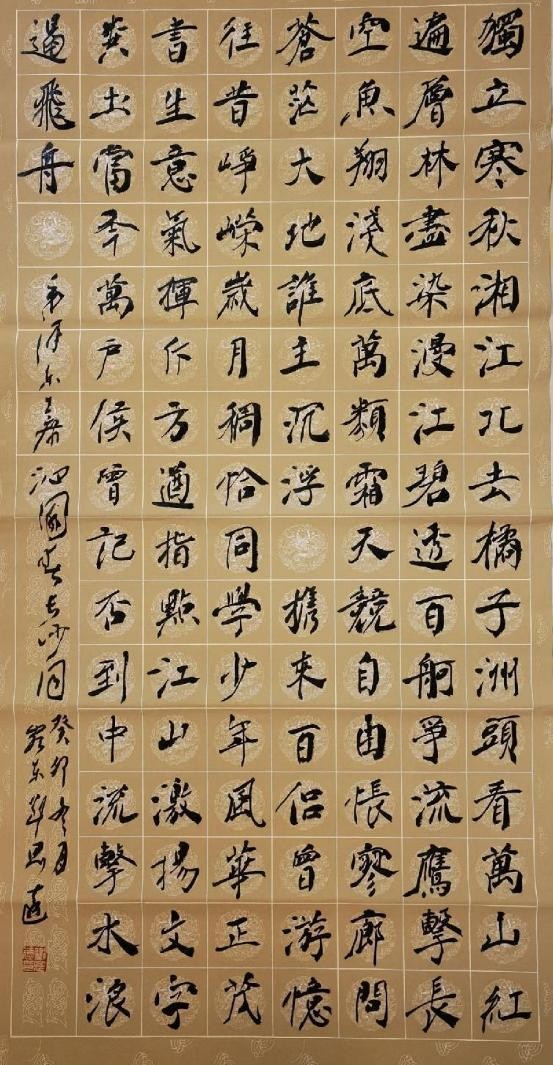 獨立寒秋湘江北去橘子洲頭看萬山紅
遍層林盡染漫江碧透百舸爭流鷹擊長
空魚翔淺底萬類霜天競自由悵寥廓問
蒼茫大地誰主沉浮攜來百侶曾游憶
往昔崢嶸歲月稠恰同學少年風華正茂
書生意氣揮斥方遒指點江山激揚文字
糞土當年萬戶侯曾記否到中流擊水浪
遏飛舟
毛澤东主席沁園春長沙詞
癸卯